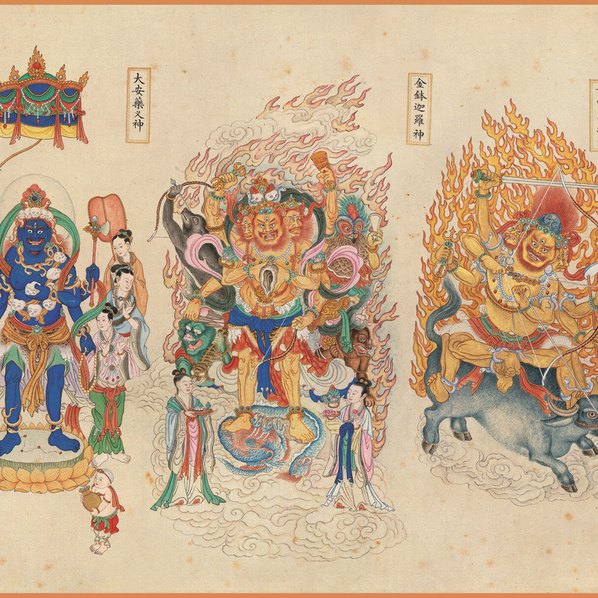 大安藥叉神
金鉢迦羅神